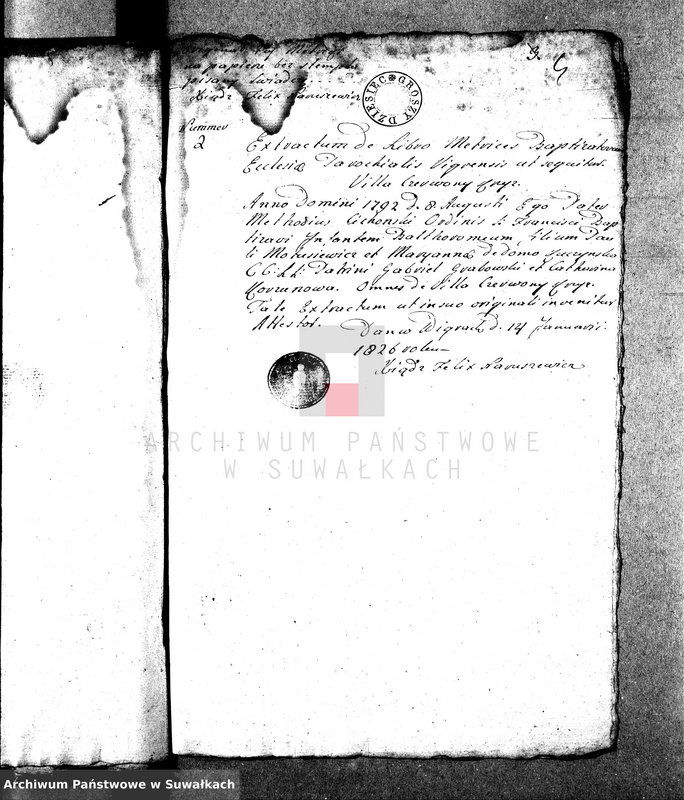 na papierze bez stempla
pisany świadczę
Xiądz Felix Naruszewicz
3. 5
DZIESIĘC GROSZY
Nummer
2
Extractum de Libro Metrices Baptizatorum
Ecclesiæ Parochialis Vigrensis ut sequitur.
Villa Czerwony
Anno Domini 1792 d. 8 Augusti Ego Pater
Methodius Cichonski Ordinis S. Francisci Bap
tizavi Infantem Bartholomeum, filium Pau
li Mokusiewicz et Maryannæ de domo
C.C.L.L. Patrini Gabriel Grabowski et Catharina
Omnes de Villa Czerwony
Tale Extractum ut in suo originali invenitur
Attestor.
Dan w Wigrach d. 14 Januarii
1826 roku
Xiądz Felix Naruszewicz
ARCHIWUM PAŃSTWOWE
W SUWAŁKACH
Archiwum Państwowe w Suwałkach